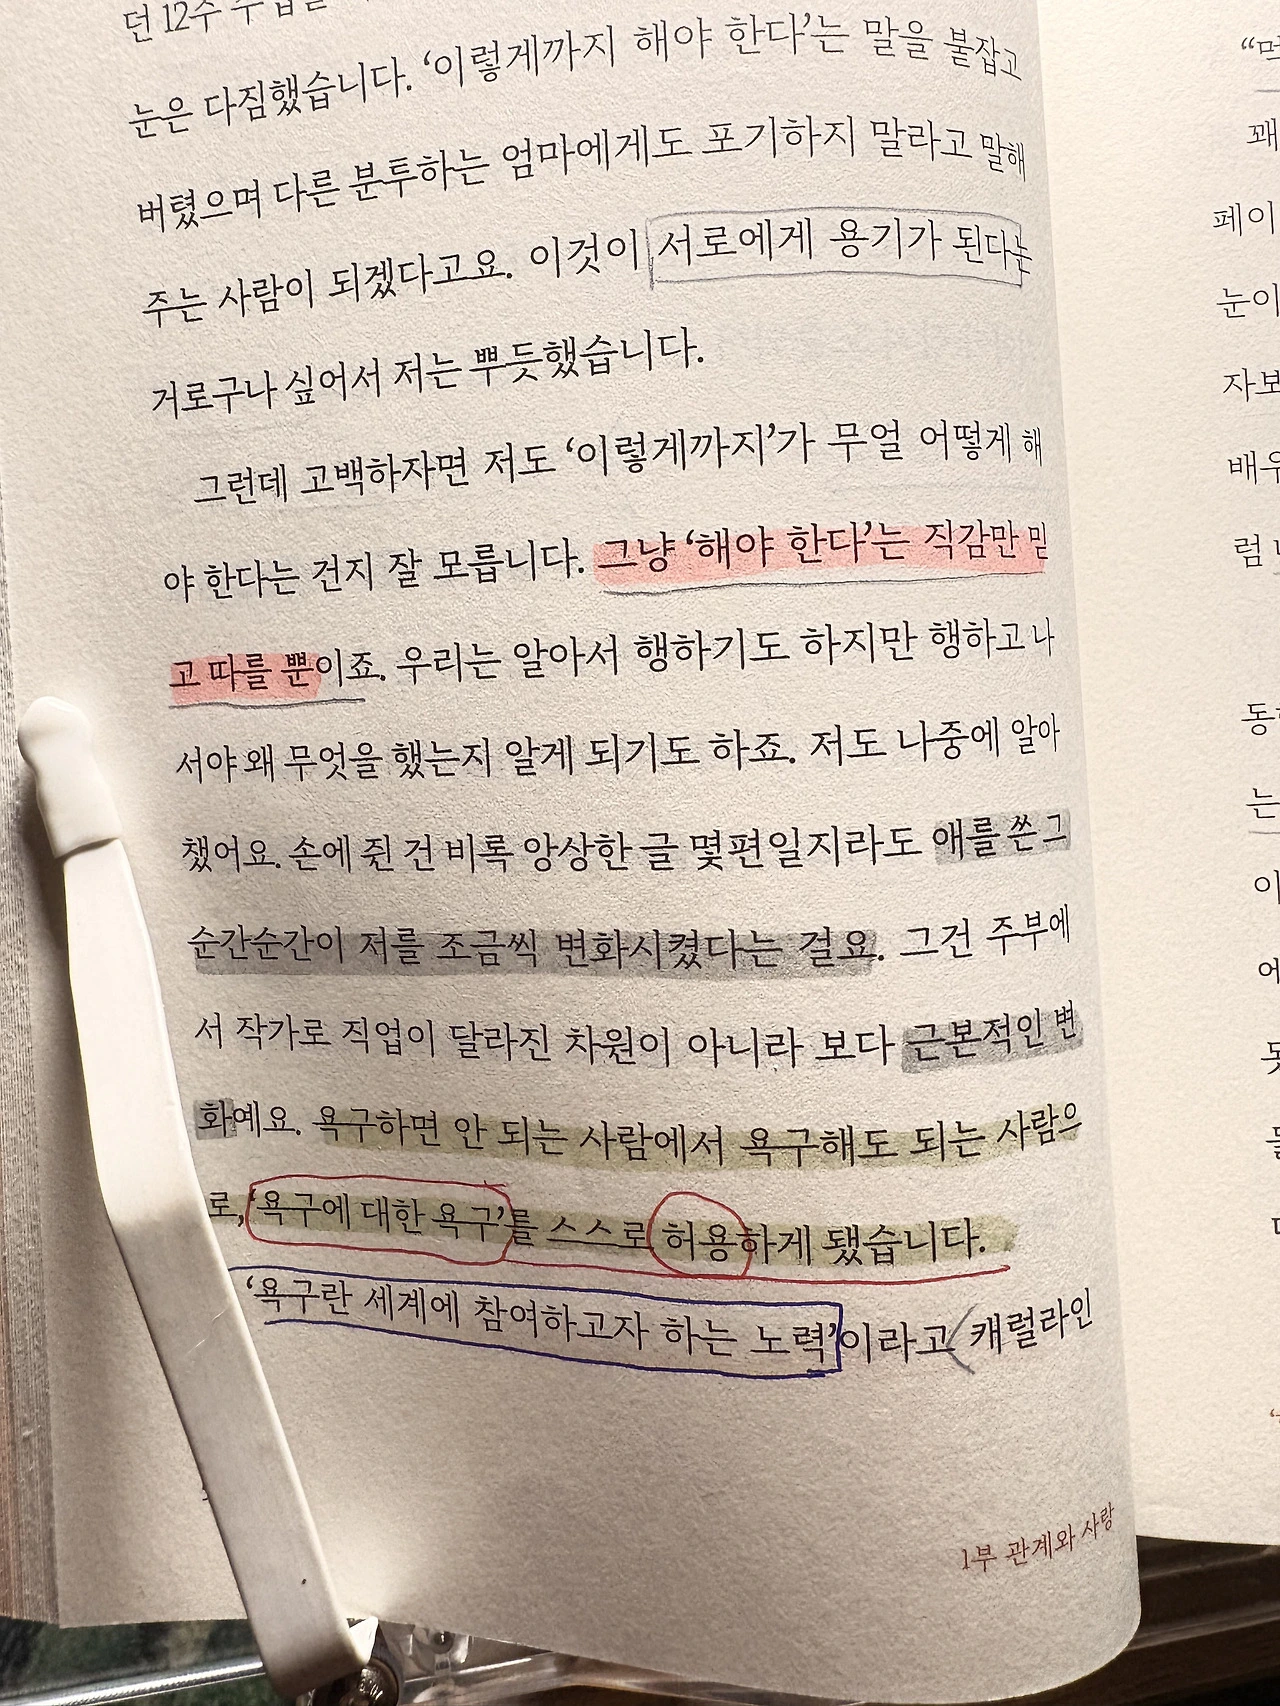 던 12주 수업을
눈은 다짐했습니다. ‘이렇게까지 해야 한다’는 말을 붙잡고
버텼으며 다른 분투하는 엄마에게도 포기하지 말라고 말해
주는 사람이 되겠다고요. 이것이 서로에게 용기가 된다는
거로구나 싶어서 저는 뿌듯했습니다.
그런데 고백하자면 저도 ‘이렇게까지’가 무얼 어떻게 해
야 한다는 건지 잘 모릅니다. 그냥 ‘해야 한다’는 직감만 믿
고 따를 뿐이죠. 우리는 알아서 행하기도 하지만 행하고 나
서야 왜 무엇을 했는지 알게 되기도 하죠. 저도 나중에 알아
챘어요. 손에 쥔 건 비록 앙상한 글 몇 편일지라도 애를 쓴 그
순간순간이 저를 조금씩 변화시켰다는 걸요. 그건 주부에
서 작가로 직업이 달라진 차원이 아니라 보다 근본적인 변
화예요. 욕구하면 안 되는 사람에서 욕구해도 되는 사람으
로, ‘욕구에 대한 욕구’를 스스로 허용하게 됐습니다.
‘욕구란 세계에 참여하고자 하는 노력’이라고 캐럴라인
1부 관계와 사랑
꽤
페이
눈이
자보
배우
럼
는
이
에